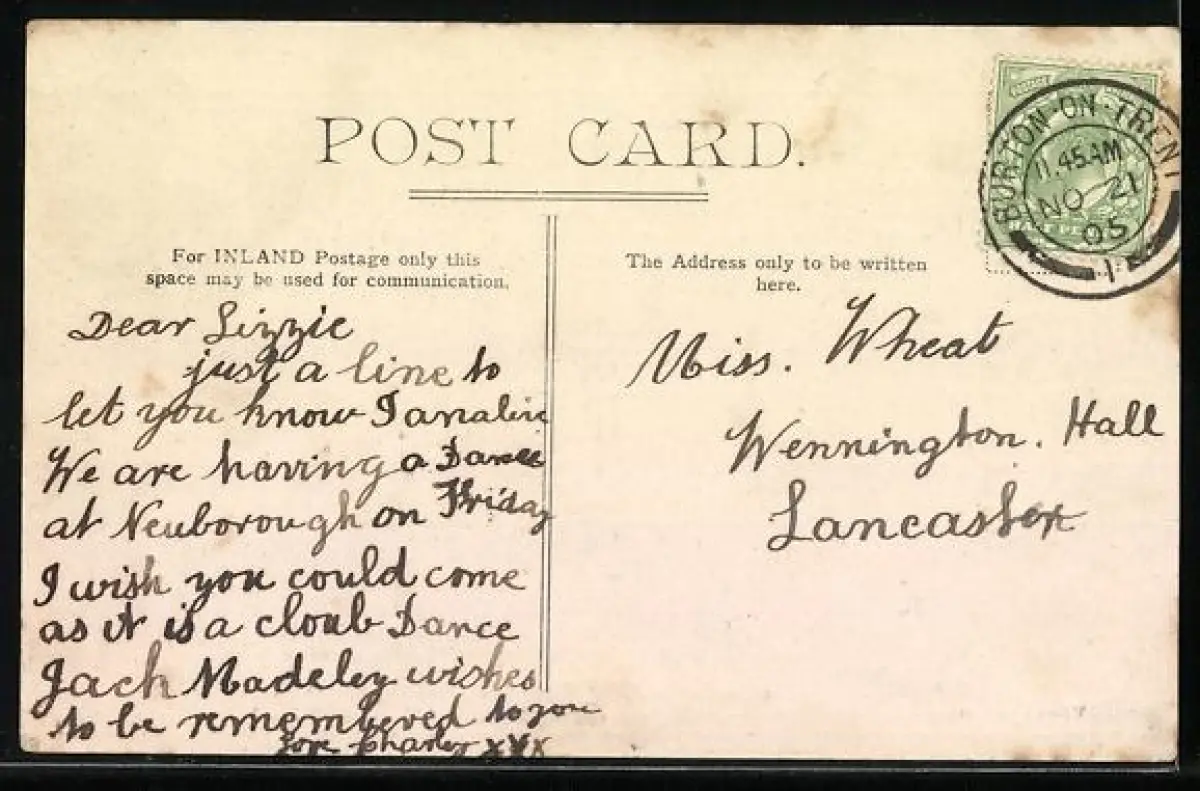 POST CARD.
BURTON-ON-TRENT
11.45AM
NO 21
05
For INLAND Postage only this
space may be used for communication.
The Address only to be written
here.
Dear Lizzie
just a line to
let you know I am alive
We are having a Dance
at Newborough on Friday
I wish you could come
as it is a cloub Dance
Jack Madeley wishes
to be remembered to you
xxx
Miss. Wheat
Wennington. Hall
Lancaster